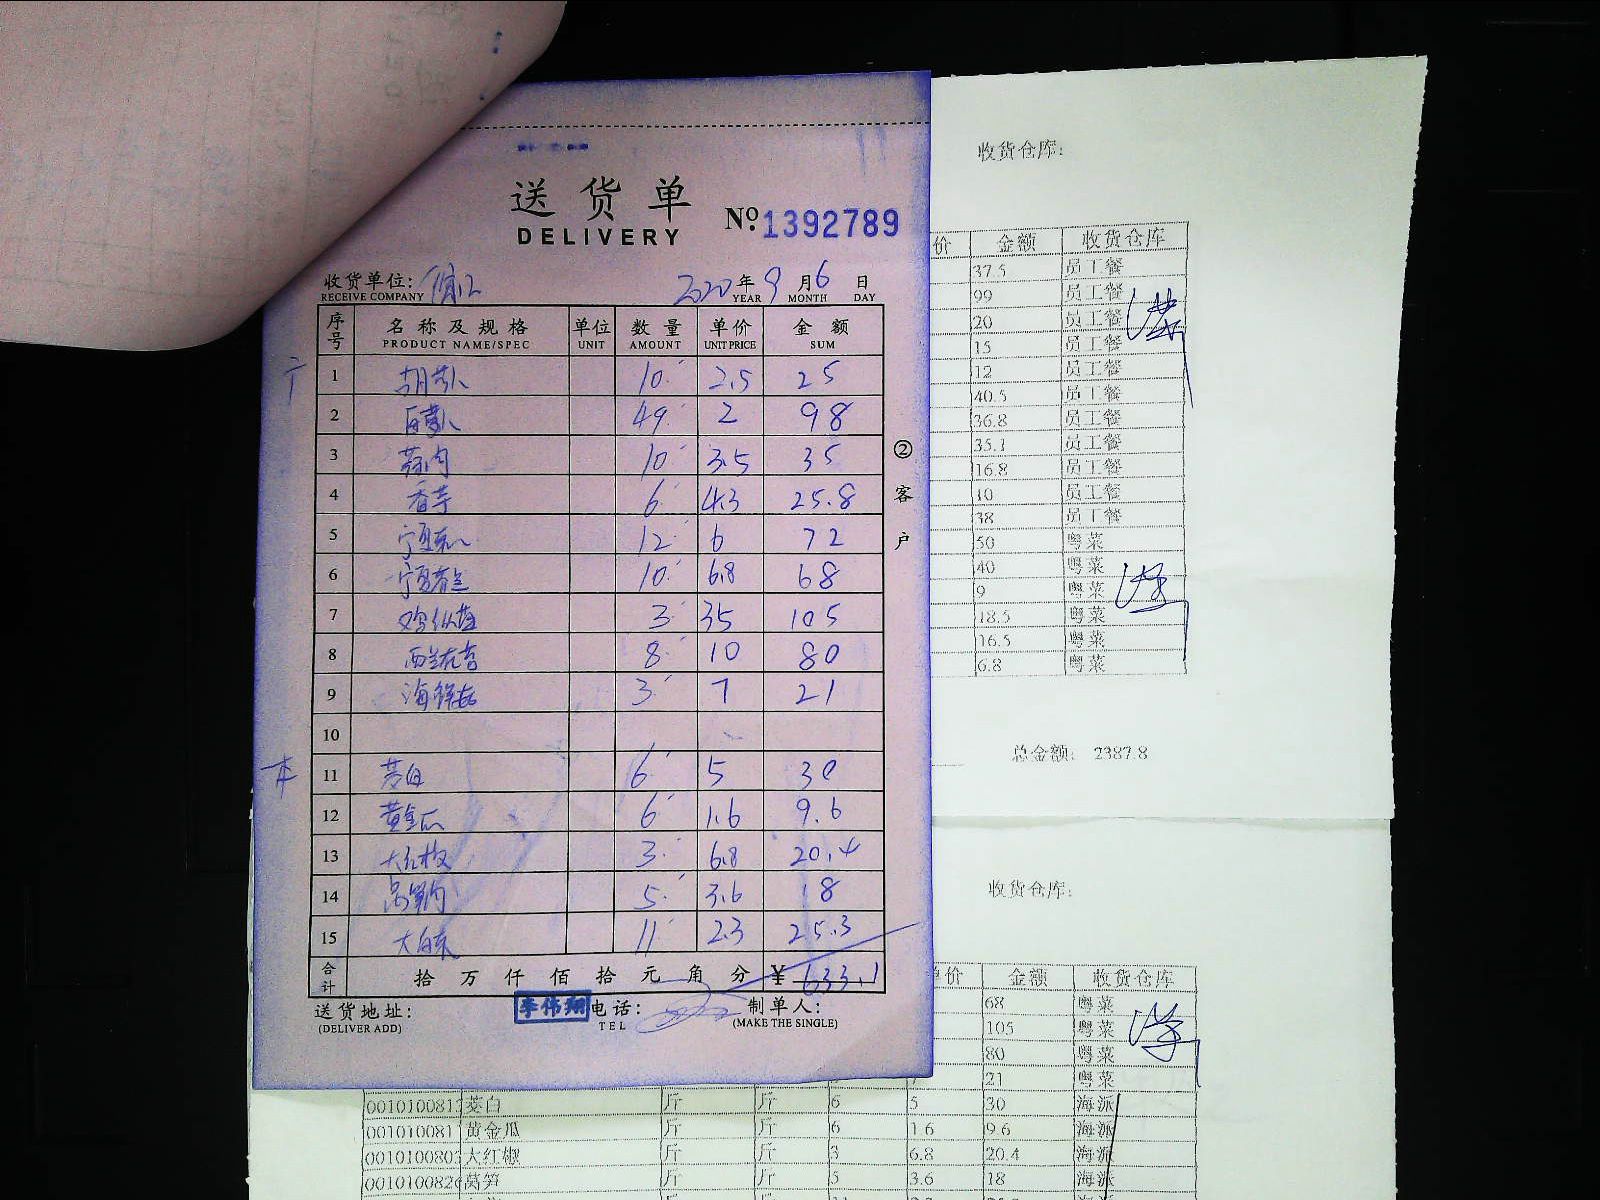 送货单
DELIVERY
Nº 1392789
收货单位:
RECEIVE COMPANY
2020 年 9 月 6 日
YEAR MONTH DAY
序号 名称及规格 单位 数量 单价 金额
PRODUCT NAME/SPEC UNIT AMOUNT UNIT PRICE SUM
1 胡萝卜 10 2.5 25
2 白萝卜 49 2 98
3 蒜肉 10 3.5 35
4 香芋 6 4.3 25.8
5 宁夏菜心 12 6 72
6 10 6.8 68
7 鸡枞菌 3 35 105
8 西兰花苗 8 10 80
9 海鲜菇 3 7 21
10
11 茭白 6 5 30
12 黄金瓜 6 1.6 9.6
13 大红椒 3 6.8 20.4
14 莴笋肉 5 3.6 18
15 大白菜 11 2.3 25.3
合计 拾 万 仟 佰 拾 元 角 分 ¥ 633.1
送货地址:
(DELIVER ADD)
李伟翔
电话:
TEL
制单人:
(MAKE THE SINGLE)
②客户
收货仓库:
价 金额 收货仓库
37.5 员工餐
99 员工餐
20 员工餐
15 员工餐
12 员工餐
40.5 员工餐
36.8 员工餐
35.1 员工餐
16.8 员工餐
10 员工餐
38 员工餐
50 粤菜
40 粤菜
9 粤菜
18.5 粤菜
16.5 粤菜
6.8 粤菜
总金额: 2387.8
收货仓库:
单价 金额 收货仓库
68 粤菜
105 粤菜
80 粤菜
21 粤菜
001010081 茭白 斤 斤 6 5 30 海派
001010081 黄金瓜 斤 斤 6 1.6 9.6 海派
0010100803 大红椒 斤 斤 3 6.8 20.4 海派
0010100826 莴笋 斤 斤 5 3.6 18 海派